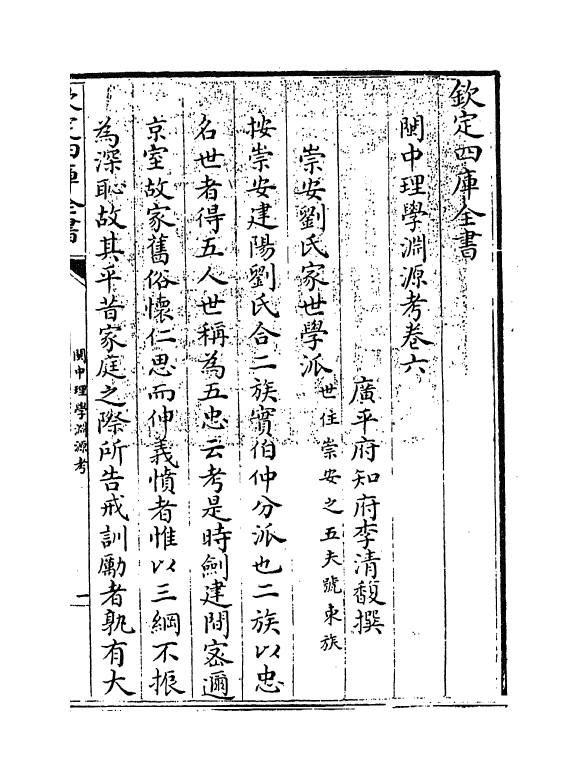 欽定四庫全書
閩中理學淵源考卷六
廣平府知府李清馥撰
崇安劉氏家世學派世住崇安之五夫號東族
按崇安建陽劉氏合二族實伯仲分派也二族以忠
名世者得五人世稱為五忠云考是時劍建間密邇
京室故家舊俗懷仁思而仲義憤者惟以三綱不振
為深恥故其平昔家庭之際所告戒訓勵者孰有大
欽定四庫全書
閩中理學淵源考
一